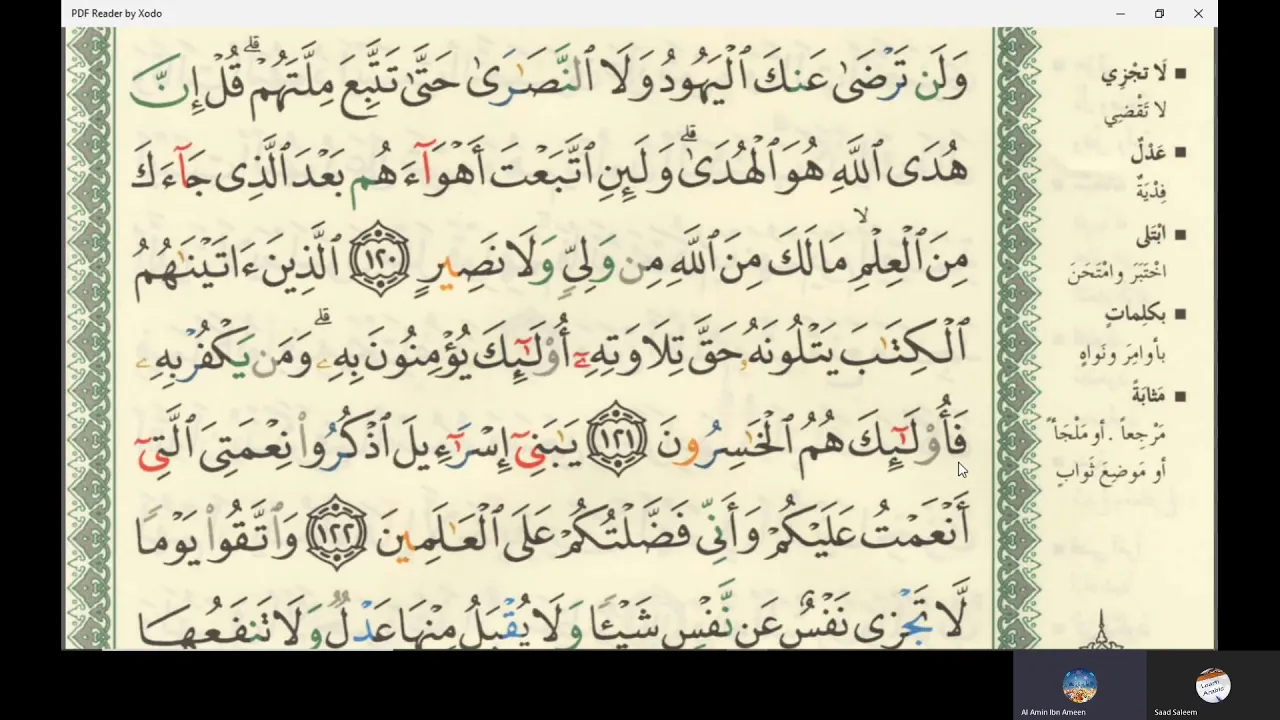 PDF Reader by Xodo
وَلَن تَرْضَىٰ عَنكَ ٱلْيَهُودُ وَلَا ٱلنَّصَـٰرَىٰ حَتَّىٰ تَتَّبِعَ مِلَّتَهُمْ ۗ قُلْ إِنَّ
هُدَى ٱللَّهِ هُوَ ٱلْهُدَىٰ ۗ وَلَئِنِ ٱتَّبَعْتَ أَهْوَآءَهُم بَعْدَ ٱلَّذِى جَآءَكَ
مِنَ ٱلْعِلْمِ ۙ مَا لَكَ مِنَ ٱللَّهِ مِن وَلِىٍّ وَلَا نَصِيرٍ ١٢٠ ٱلَّذِينَ ءَاتَيْنَـٰهُمُ
ٱلْكِتَـٰبَ يَتْلُونَهُۥ حَقَّ تِلَاوَتِهِۦٓ أُو۟لَـٰٓئِكَ يُؤْمِنُونَ بِهِۦ ۗ وَمَن يَكْفُرْ بِهِۦ
فَأُو۟لَـٰٓئِكَ هُمُ ٱلْخَـٰسِرُونَ ١٢١ يَـٰبَنِىٓ إِسْرَٰٓءِيلَ ٱذْكُرُوا۟ نِعْمَتِىَ ٱلَّتِىٓ
أَنْعَمْتُ عَلَيْكُمْ وَأَنِّى فَضَّلْتُكُمْ عَلَى ٱلْعَـٰلَمِينَ ١٢٢ وَٱتَّقُوا۟ يَوْمًا
لَّا تَجْزِى نَفْسٌ عَن نَّفْسٍ شَيْـًٔا وَلَا يُقْبَلُ مِنْهَا عَدْلٌ وَلَا تَنفَعُهَا
■ لَا تَجْزِي
لا تَقْضِي
■ عَدْلٌ
فِدْيَةٌ
■ ابْتَلَى
اخْتَبَرَ وامْتَحَنَ
■ بكلِماتٍ
بأوامِرَ ونَواهٍ
■ مَثابَةً
مَرْجعاً . أو مَلْجَأً
أو مَوضِعَ ثَوابٍ
Al Amin Ibn Ameen
Learn Arabic
Saad Saleem